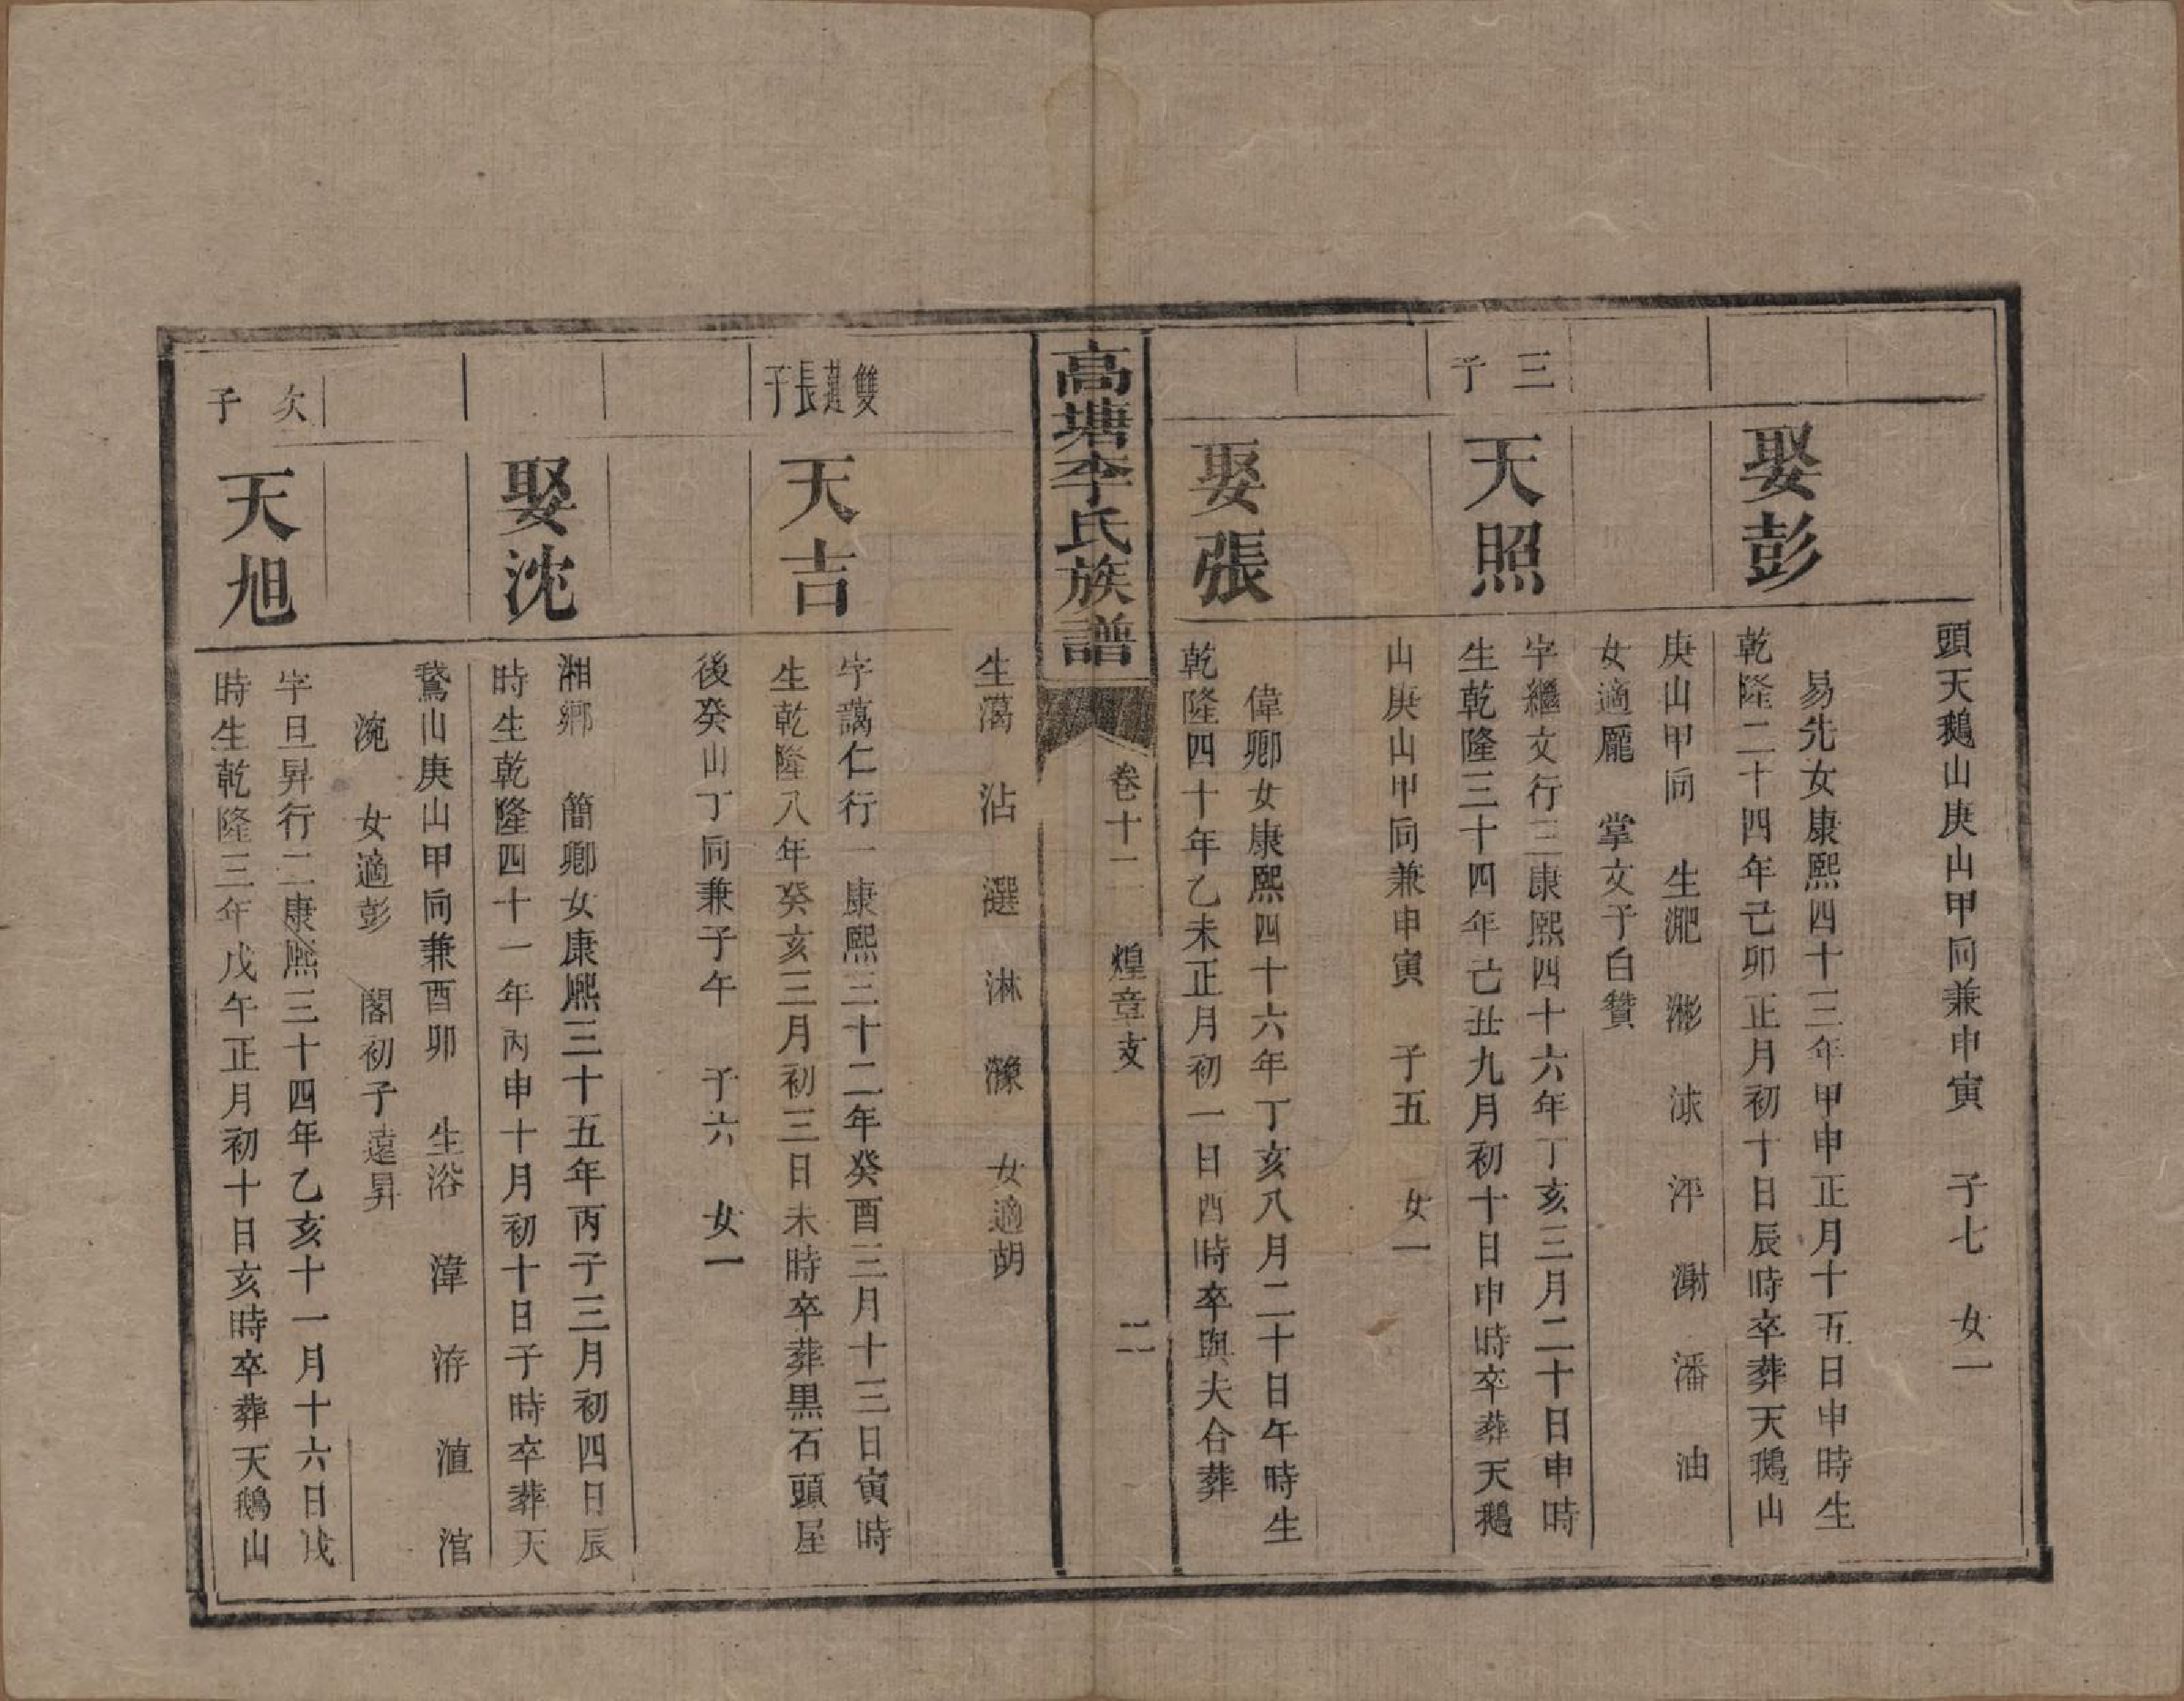 頭天鵝山庚山甲向兼申寅　子七　女一
娶彭
易先女康熙四十三年甲申正月十五日申時生
乾隆二十四年己卯正月初十日辰時卒葬天鵝山
庚山甲向　生淝　澎　浗　泙　潮　潘　油
女適龎　掌文子白贊
三子
天照
字繼文行三康熙四十六年丁亥三月二十日申時
生乾隆三十四年己丑九月初十日申時卒葬天鵝
山庚山甲向兼申寅　子五　女一
娶張
偉卿女康熙四十六年丁亥八月二十日午時生
乾隆四十年乙未正月初一日酉時卒與夫合葬
高塘李氏族譜
卷十二　煌章支
二
生蕩　沾　選　淋　濠　女適胡
雙蓮長子
天吉
字藹仁行一康熙三十二年癸酉三月十三日寅時
生乾隆八年癸亥三月初三日未時卒葬黑石頭屋
後癸山丁向兼子午　子六　女一
娶沈
湘鄉　簡卿女康熙三十五年丙子三月初四日辰
時生乾隆四十一年丙申十月初十日子時卒葬天
鵞山庚山甲向兼酉卯　生浴　湋　洊　淔　涫
涴　女適彭　閣初子遠昇
次子
天旭
字旦昇行二康熙三十四年乙亥十一月十六日戌
時生乾隆三年戊午正月初十日亥時卒葬天鵝山